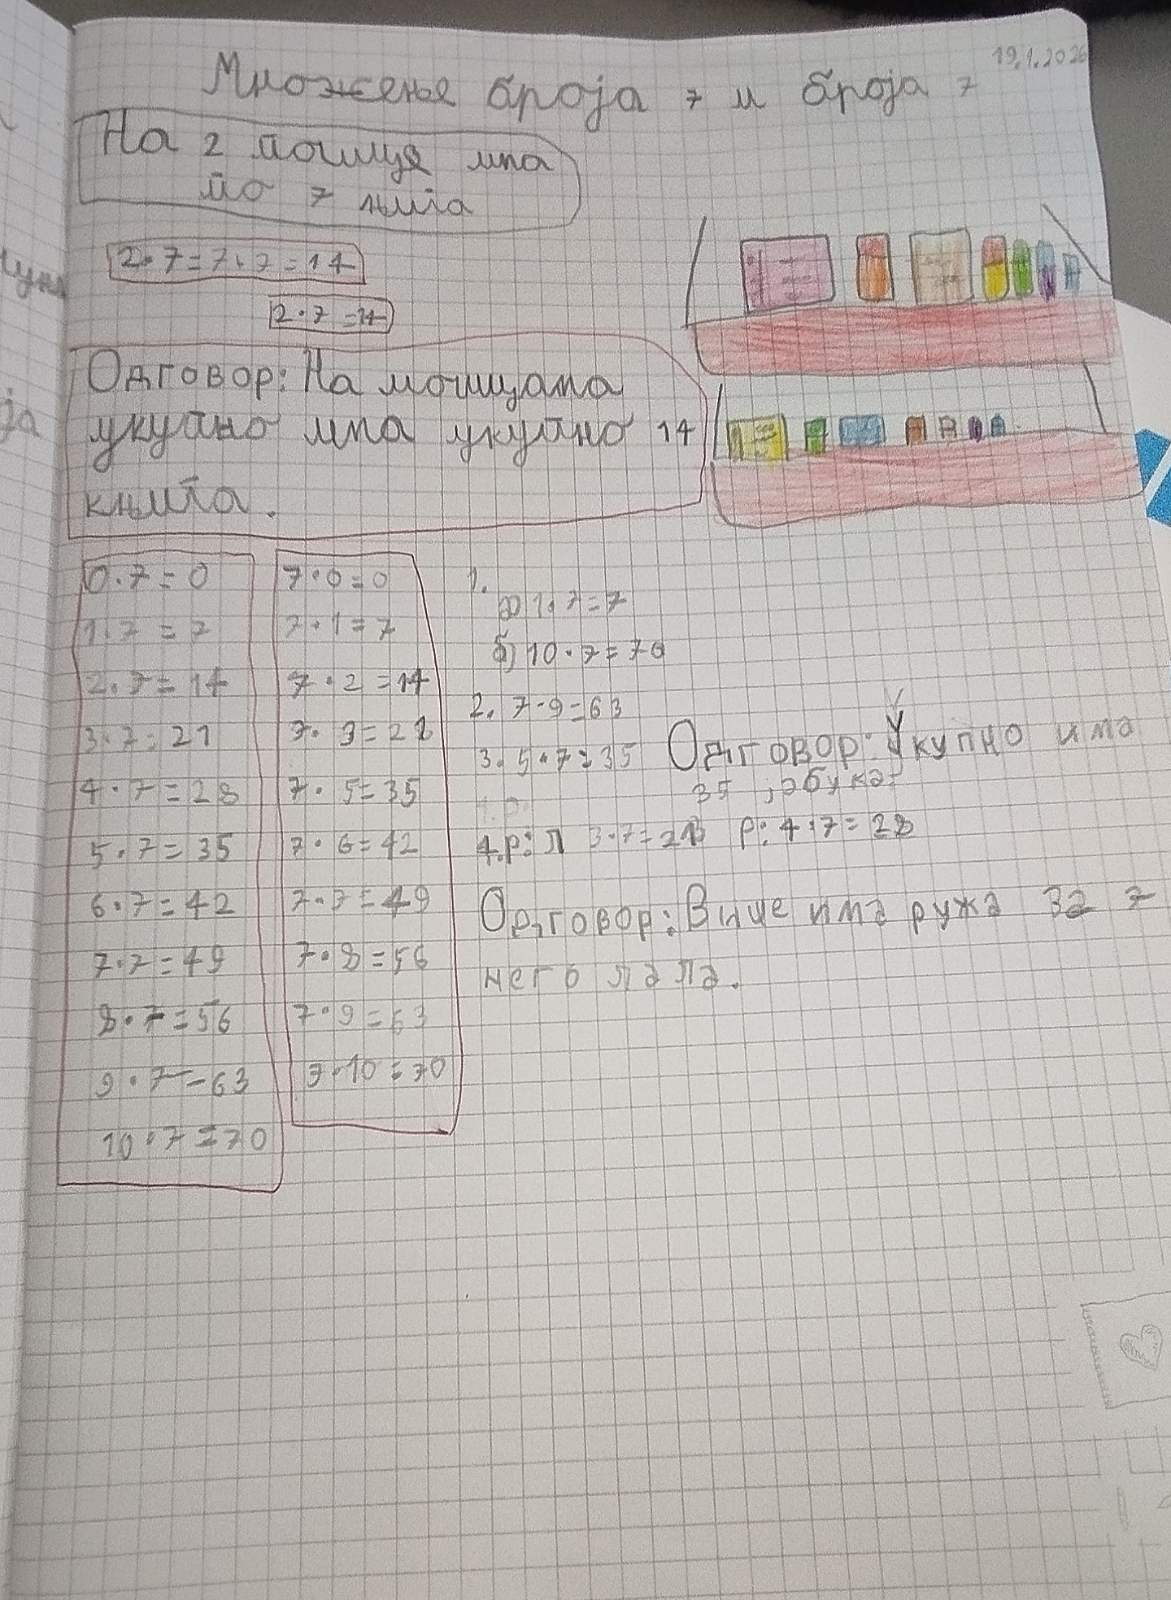 19.1.2026
Множење броја 7 и броја 7
На 2 полице има
по 7 књига
2·7=7+7=14
2·7=14
Одговор: На полицама
укупно има укупно 14
књига.
0·7=0
1·7=7
2·7=14
3·7=21
4·7=28
5·7=35
6·7=42
7·7=49
8·7=56
9·7=63
10·7=70
7·0=0
7·1=7
7·2=14
7·3=21
7·5=35
7·6=42
7·7=49
7·8=56
7·9=63
7·10=70
1.
а) 1·7=7
б) 10·7=70
2. 7·9=63
3. 5·7=35 Одговор: Укупно има
35 јабука.
4. р: Л 3·7=21 Р: 4·7=28
Одговор: Више има ружа за 7
него лала.